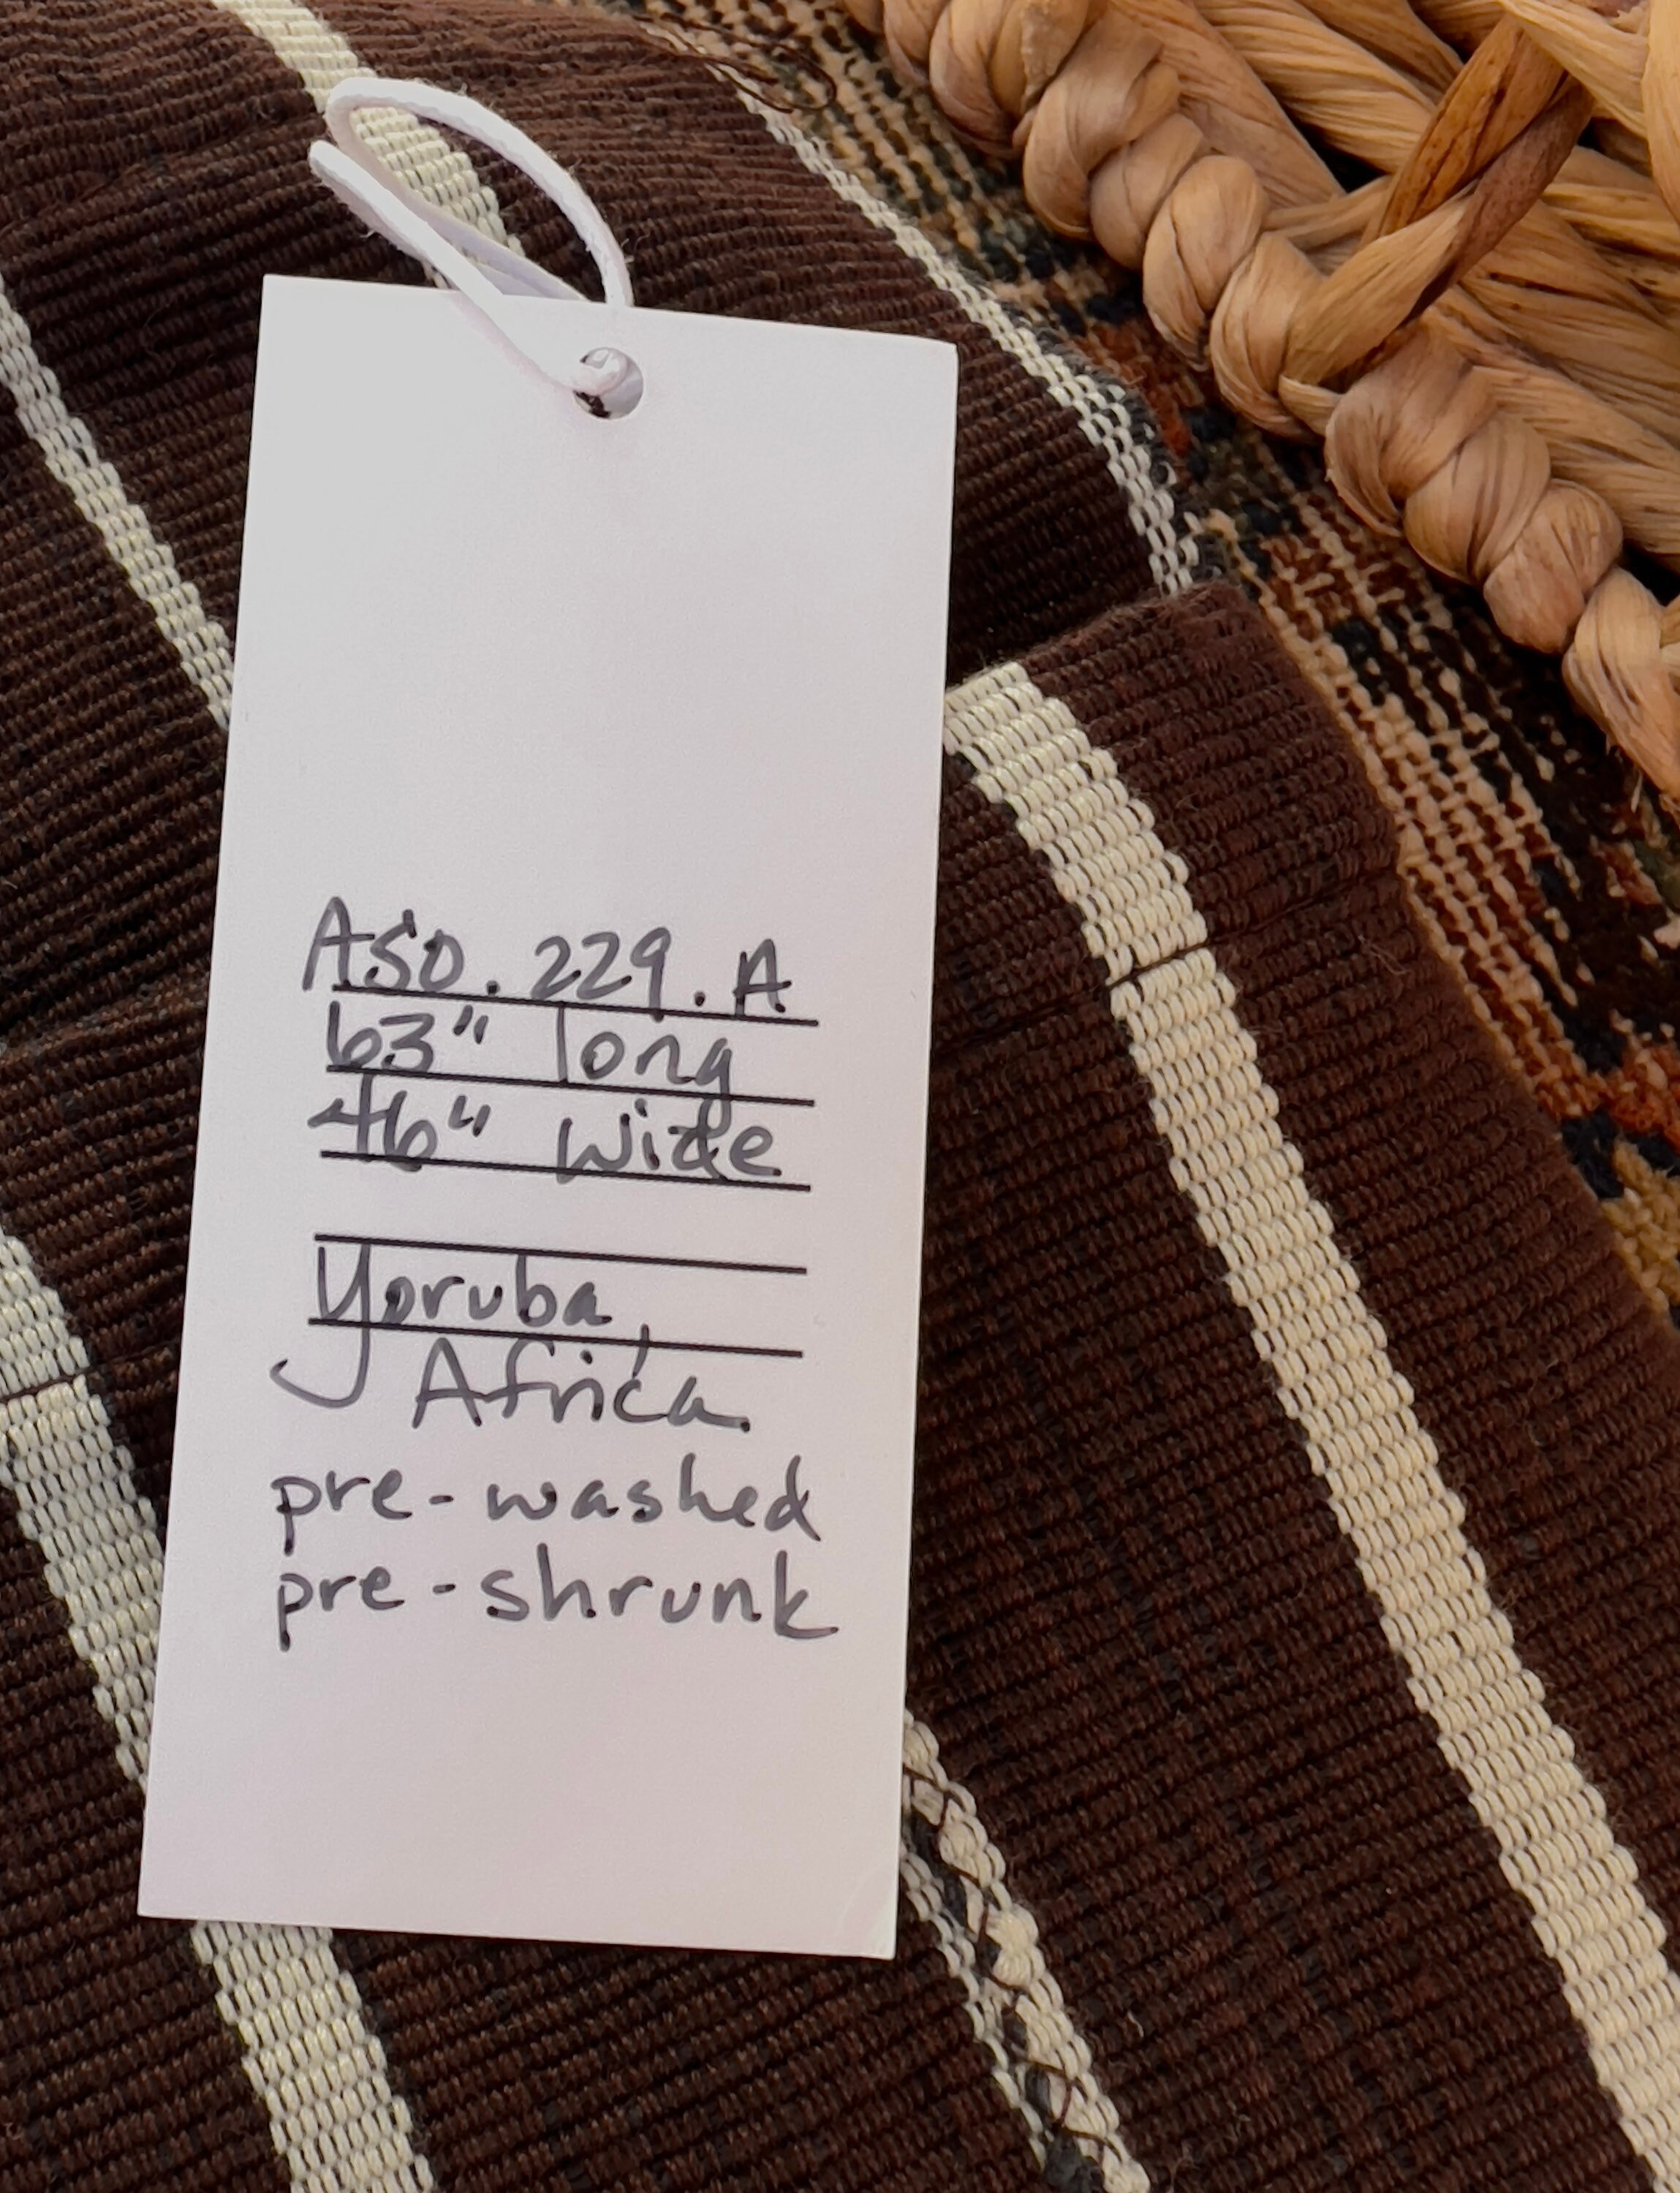 ASO.229.A
63" long
46" wide
Yoruba,
Africa
pre-washed
pre-shrunk